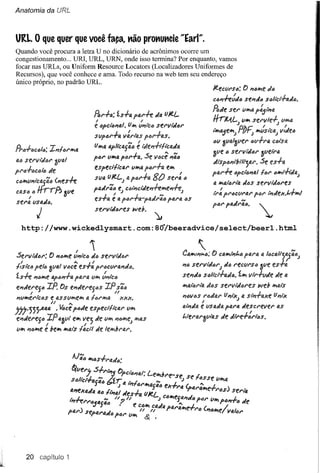 Anatomia da URL
URL. O que quer que você faça, não pronuncie "Earl".
Quando você procura a letra U no dicionário de acrônimos ocorre um
congestionamento... URI, URL, URN, onde isso termina? Por enquanto, vamos
focar nas URLs, ou Uniform Resource Locators (Localizadores Uniformes de
Recursos), que você conhece e ama. Todo recurso na web tem seu endereço
único próprio, no padrão URL.
Protocolo: Informa
ao servidor qual
protocolo de
comunicação (neste
caso o HTTP) que
será usado.
Porta: Esta parte da URL
é opcional. Um único servidor
suporta várias portas.
Uma aplicação é identificada
por uma porta. Se você não
especificar uma porta em
sua URL, a porta 80 será o
padrão e, coincidentemente,
esta é a porta-padrão para os
servidores web.
Recurso: O nome do
conteúdo sendo solicitado.
Pode ser uma página
HTML, um servlet, uma
imagem, PDF, música, vídeo
ou qualquer outra coisa
que o servidor queira
disponibilizar. Se esta
parte opcional for omitida,
a maioria dos servidores
irá procurar por index.html
por padrão.
http://www.wickedlysmart.com:80/beeradvice/select/beer1.html
Servidor: O nome único do servidor
físico pelo qual você está procurando.
Este nome aponta para um único
endereço IP. Os endereços IP são
numéricos e assumem a forma "xxx.
yyy.zzz.aaa". Você pode especificar um
endereço IP aqui em vez de um nome, mas
um nome é bem mais fácil de lembrar.
Caminho: O caminho para a localização,
no servidor, do recurso que está
sendo solicitado. Em virtude de a
maioria dos servidores web mais
novos rodar Unix, a sintaxe Unix
ainda é usada para descrever as
hierarquias de diretórios.
Não mostrado:
Query String Opcional: Lembre-se, se fosse uma
solicitação GET, a informação extra (parâmetros) seria
anexada ao final desta URL, começando por um ponto de
interrogação "?" e com cada parâmetro (nome/ valor
par) separado por um "&".
20 capítulo 1